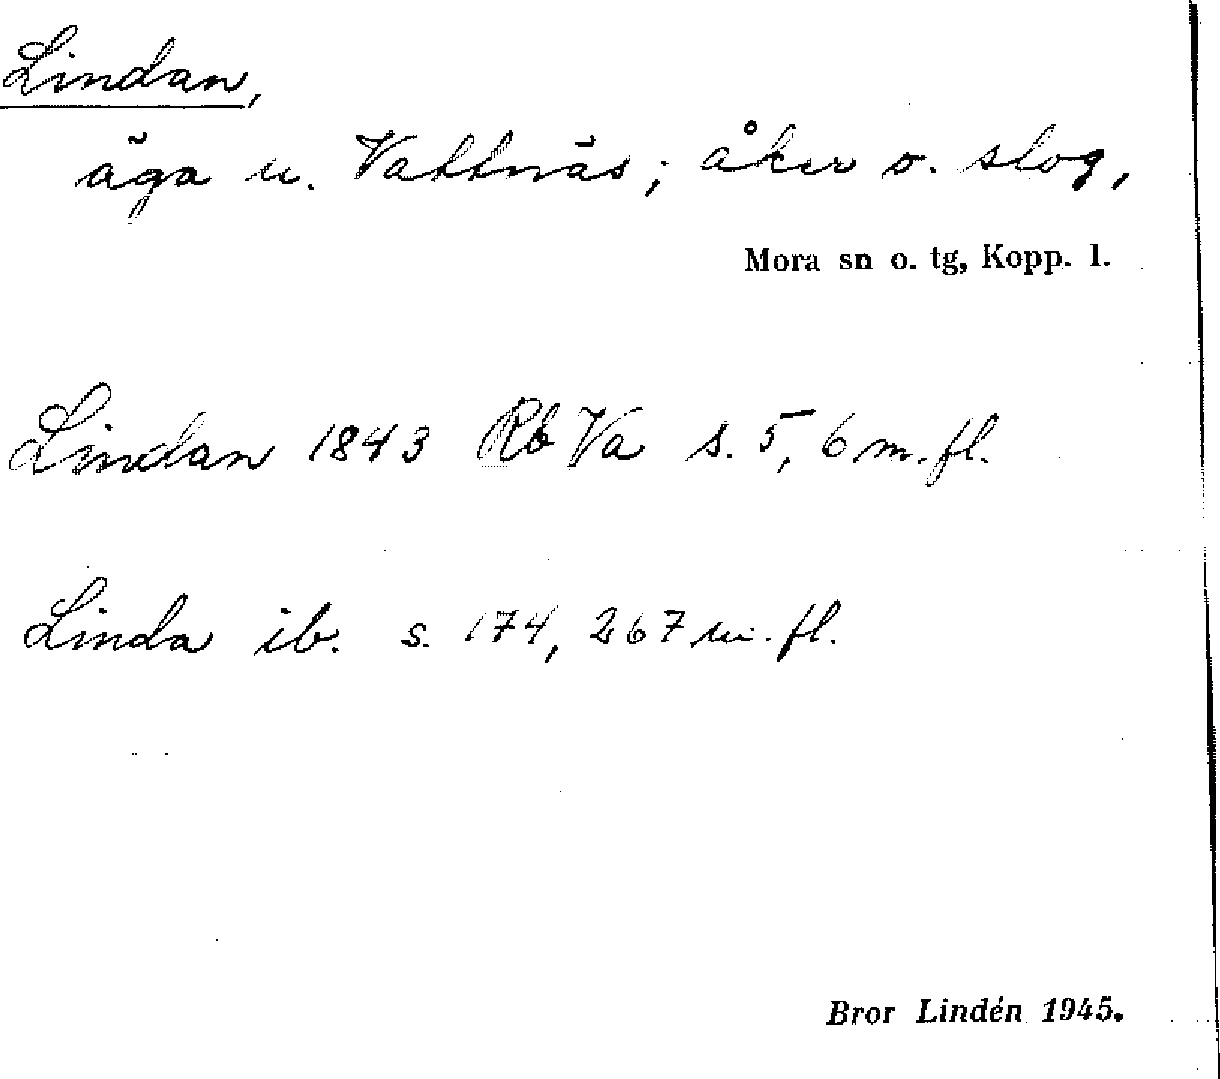 Lindan,
äga u. Vattnäs; åker o. slog,
Mora sn o. tg, Kopp. l.
Lindan 1843 Rb Va s. 5, 6 m. fl.
Linda ib. s. 174, 267 m. fl.
Bror Lindén 1945.